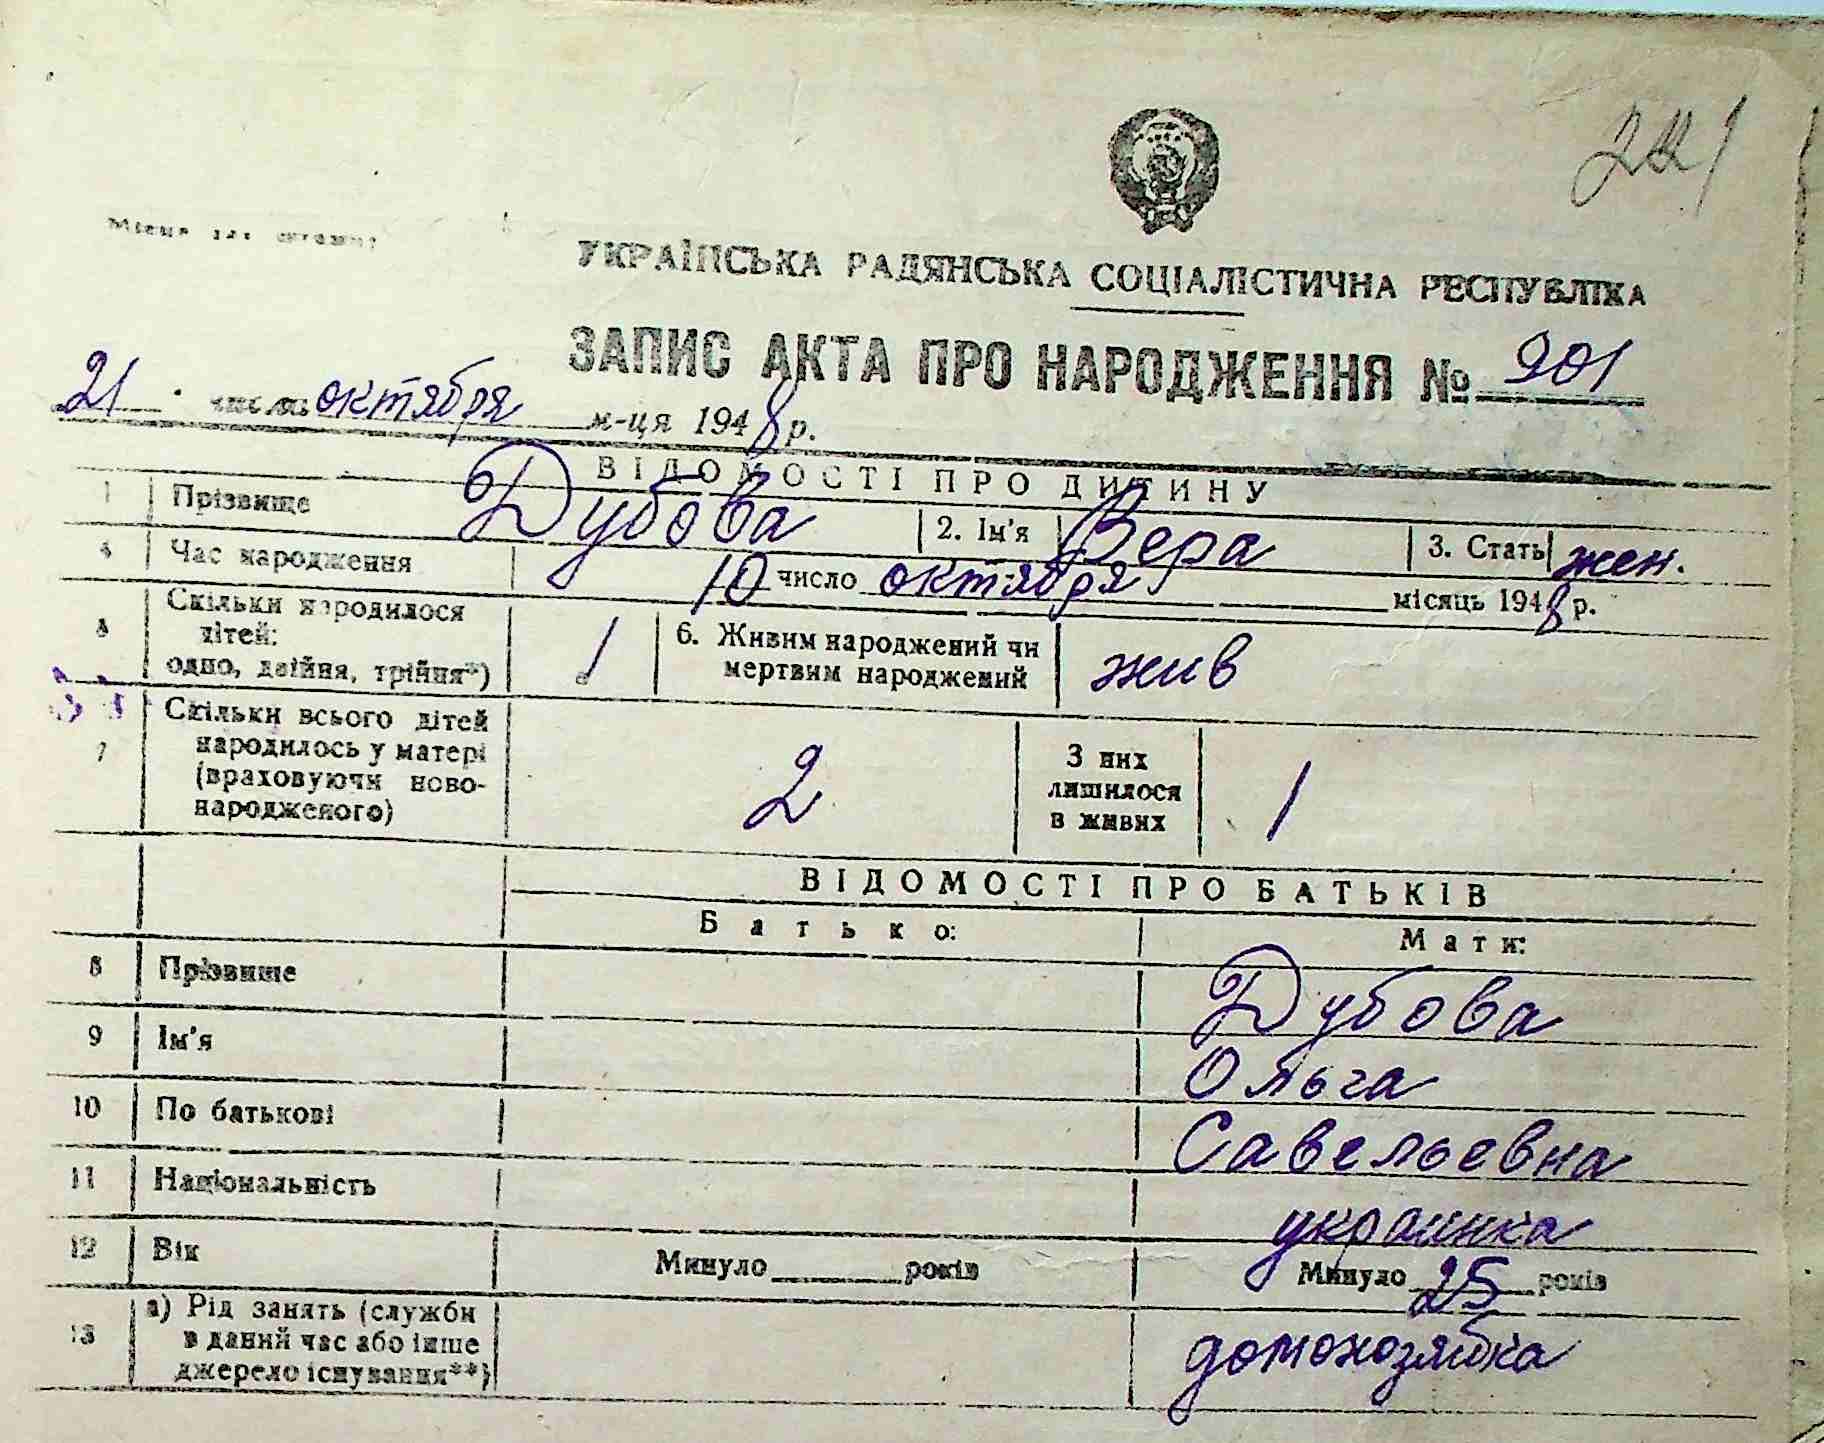 221
Місце для штампу
УКРАЇНСЬКА РАДЯНСЬКА СОЦІАЛІСТИЧНА РЕСПУБЛІКА
ЗАПИС АКТА ПРО НАРОДЖЕННЯ № 901
21 числа октября м-ця 1948 р.
ВІДОМОСТІ ПРО ДИТИНУ
1 Прізвище Дубова 2. Ім'я Вера 3. Стать жен.
4 Час народження 10 число октября місяць 1948 р.
5 Скільки народилося дітей: одно, двійня, трійня*) 1 6. Живим народжений чи мертвим народжений жив
7 Скільки всього дітей народилось у матері (враховуючи новонародженого) 2 З них лишилося в живих 1
ВІДОМОСТІ ПРО БАТЬКІВ
Батько: Мати:
8 Прізвище Дубова
9 Ім'я Ольга
10 По батькові Савельевна
11 Національність украинка
12 Вік Минуло ____ років Минуло 25 років
13 а) Рід занять (служби в даний час або інше джерело існування**) домохозяйка